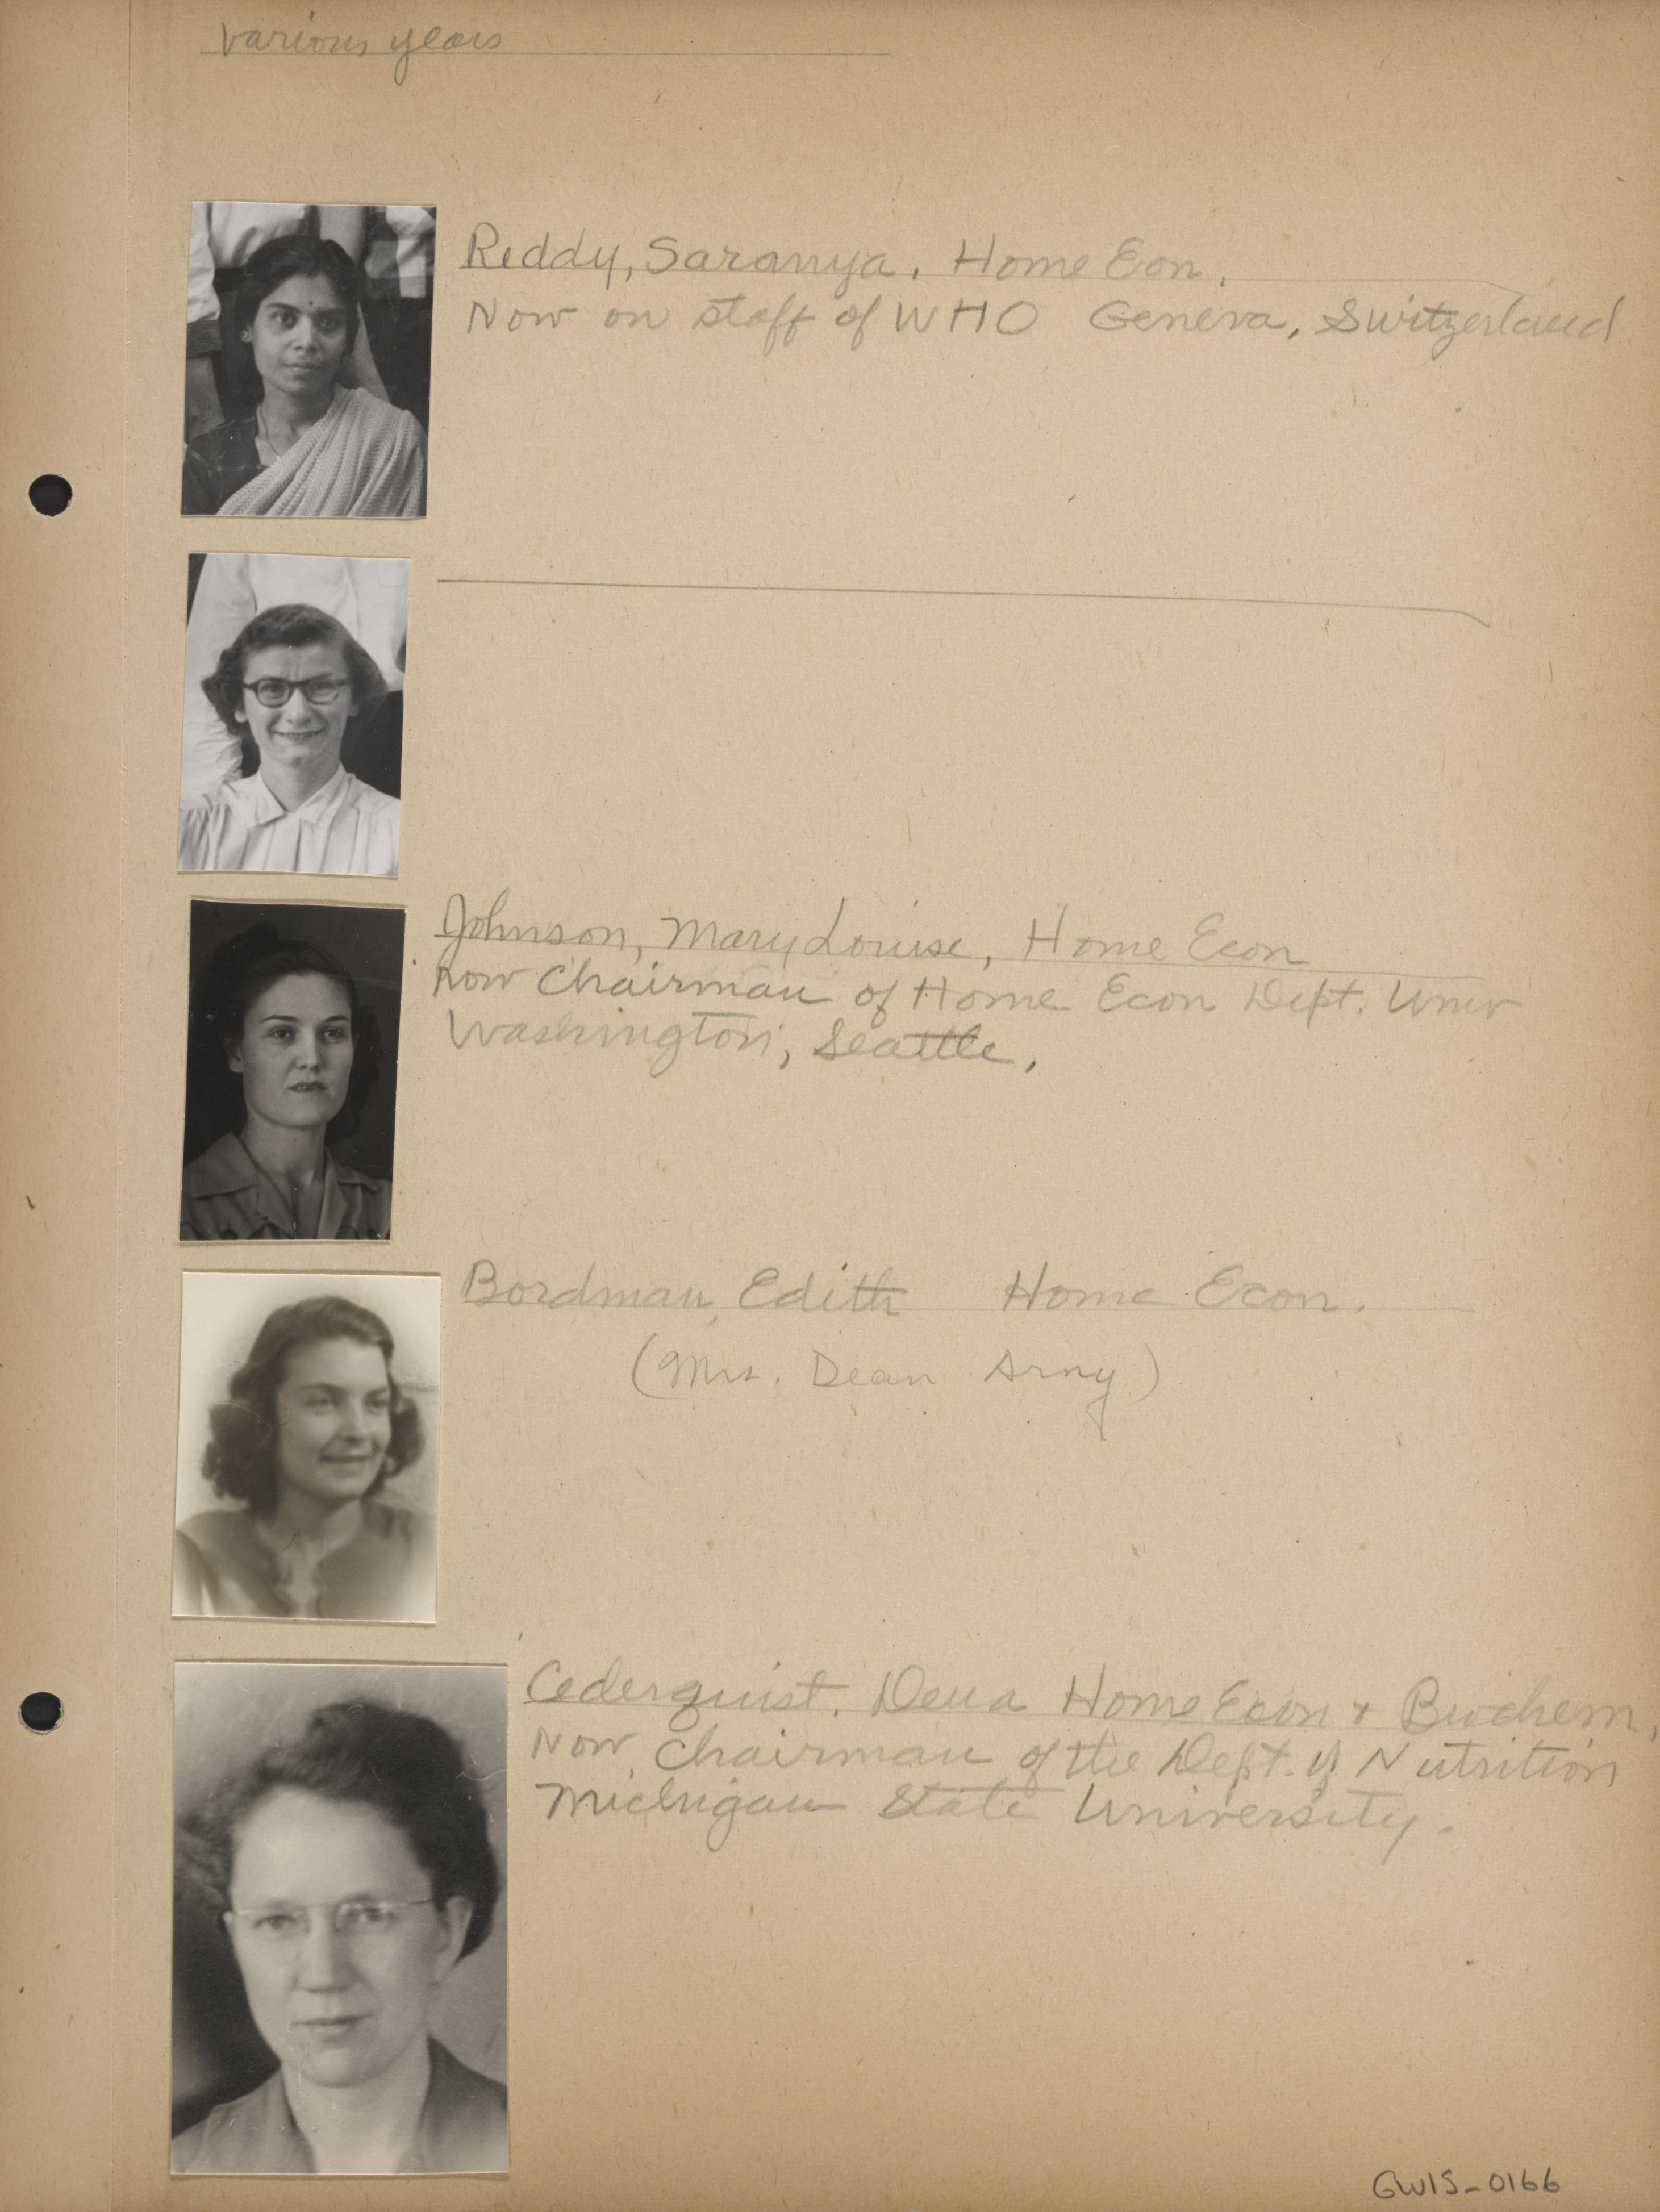 various years
Reddy, Saranya. Home Eon.
Now on staff of WHO Geneva, Switzerland
Johnson, Mary Louise, Home Econ
now Chairman of Home Econ Dept. Univ
Washington, Seattle.
Bordman, Edith Home Econ.
(Mrs. Dean Arny)
Cederquist, Dena Home Econ + Biochem,
Now Chairman of the Dept. of Nutrition
Michigan State University.
GWIS-0166